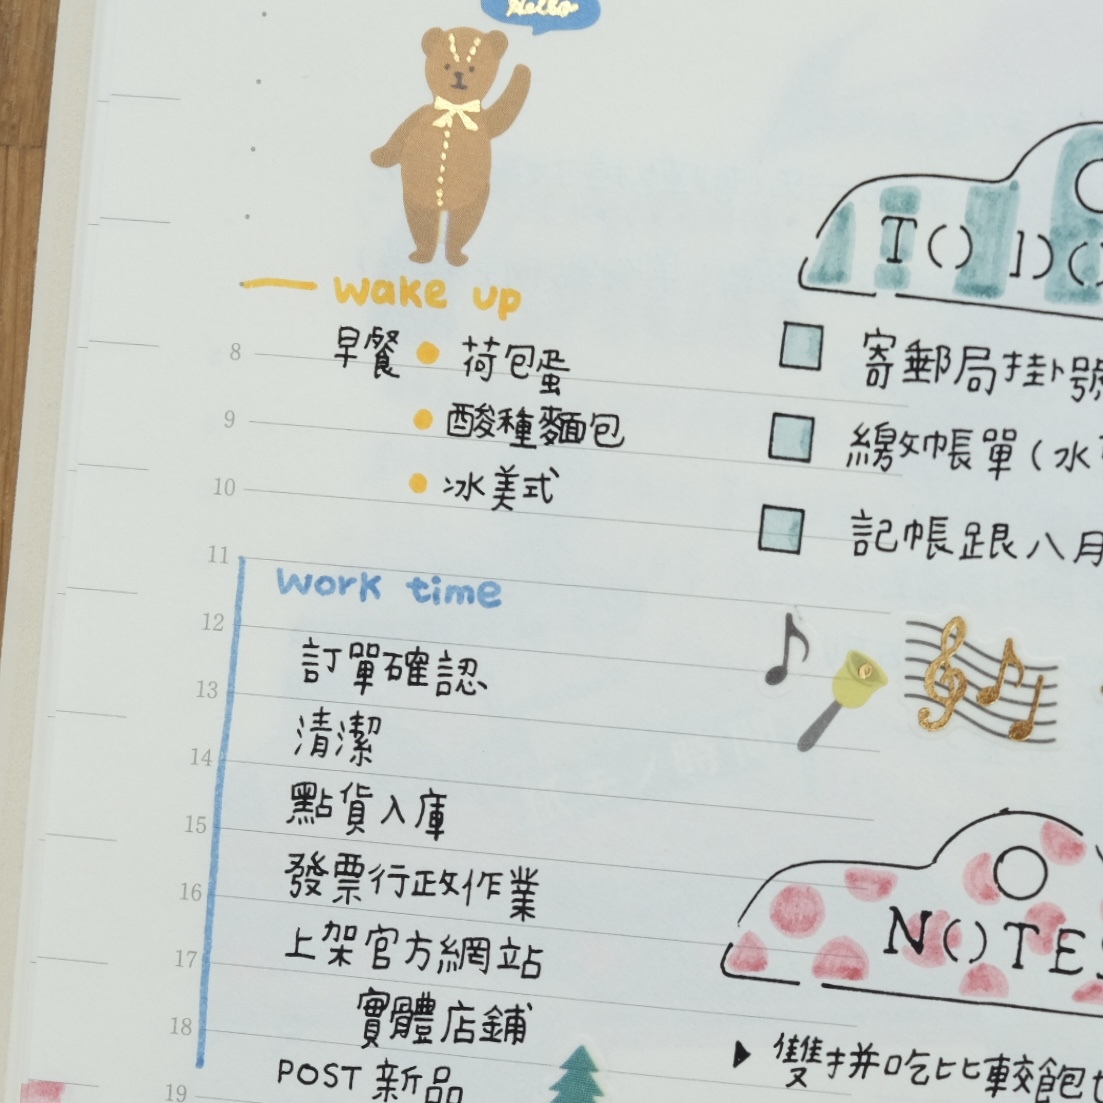 Hello
wake up
8 早餐 荷包蛋
9 酸種麵包
10 冰美式
11
Work time
12
訂單確認
13
清潔
14
點貨入庫
15
發票行政作業
16
上架官方網站
17
實體店鋪
18
POST 新品
19
TO DO
寄郵局掛號
繳帳單(水
記帳跟八月
NOTES
雙拼吃比較飽